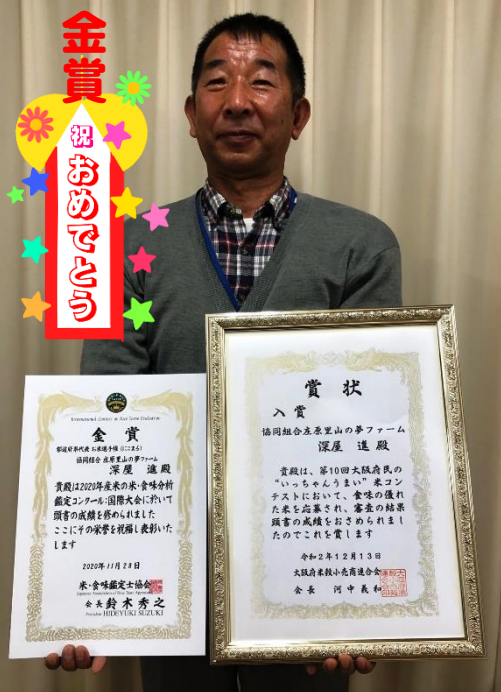 金賞
祝
おめでとう
International Contest on Rice Taste Evaluation
金賞
都道府県代表 お米選手権 (にこまる)
協同組合 庄原里山の夢ファーム
深屋 進 殿
貴殿は2020年産米の米・食味分析
鑑定コンクール:国際大会に於いて
頭書の成績を修められました
ここにその栄誉を祝福し表彰いた
します
2020年11月28日
米・食味鑑定士協会
会長 鈴木秀之
President HIDEYUKI SUZUKI
賞状
入賞
協同組合庄原里山の夢ファーム
深屋 進 殿
貴殿は、第10回大阪府民の
“いっちゃんうまい”米コ
ンテストにおいて、食味の優れ
た米を応募され、審査の結果
頭書の成績をおさめられまし
たのでこれを賞します
令和2年12月13日
大阪府米穀小売商連合会
会長 河中義和